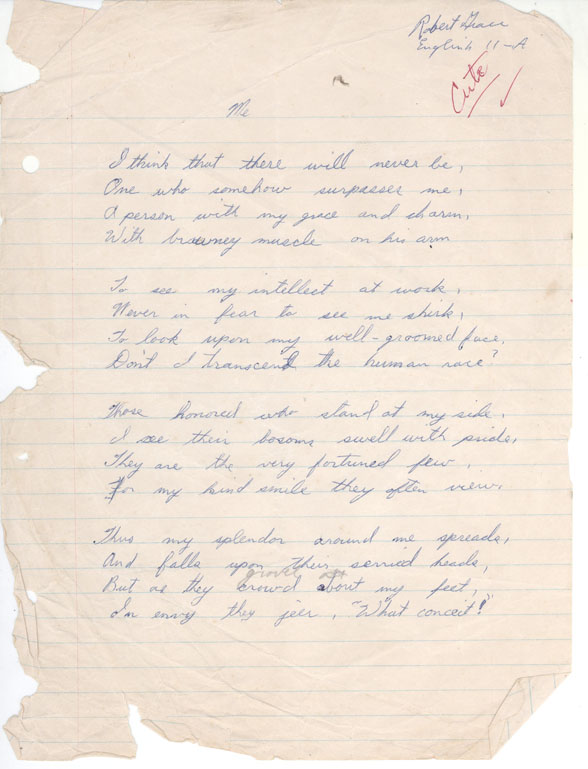 Robert
English 11-A
Cute
Me
I think that there will never be,
One who somehow surpasses me,
A person with my grace and charm,
With brawney muscle on his arm
To see my intellect at work,
Never in fear to see me shirk,
To look upon my well-groomed face,
Don't I transcend the human race?
Those honored who stand at my side,
I see their bosoms swell with pride,
They are the very fortuned few,
For my kind smile they often view.
Thus my splendor around me spreads,
And falls upon their serried heads,
grovel
But as they crowd about my feet,
In envy they jeer, "What conceit!"